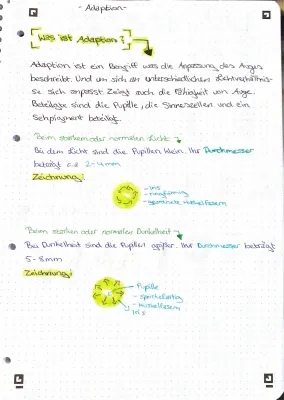 - Adaption -
Was ist Adaption?
Adaption ist ein Begriff was die Anpassung des Auges
beschreibt. Und um sich an unterschiedlichen Lichtverhältnis-
se sich anpasst. Zeigt auch die Fähigkeit von Auge.
Beteiligte sind die Pupille, die Sinneszellen und ein
Sehpigment beteiligt.
Beim starken oder normalen Licht:
Bei dem Licht sind die Pupillen klein. Ihr Durchmesser
beträgt ca 2-4mm.
Zeichnung:
- Iris
- ringförmig
- geordnete Muskelfasern
Beim starken oder normalen Dunkelheit
Bei Dunkelheit sind die Pupillen größer. Ihr Durchmesser beträgt
5-8mm
Zeichnung:
Pupille
- speichenartig
- Muskelfasern
Iris